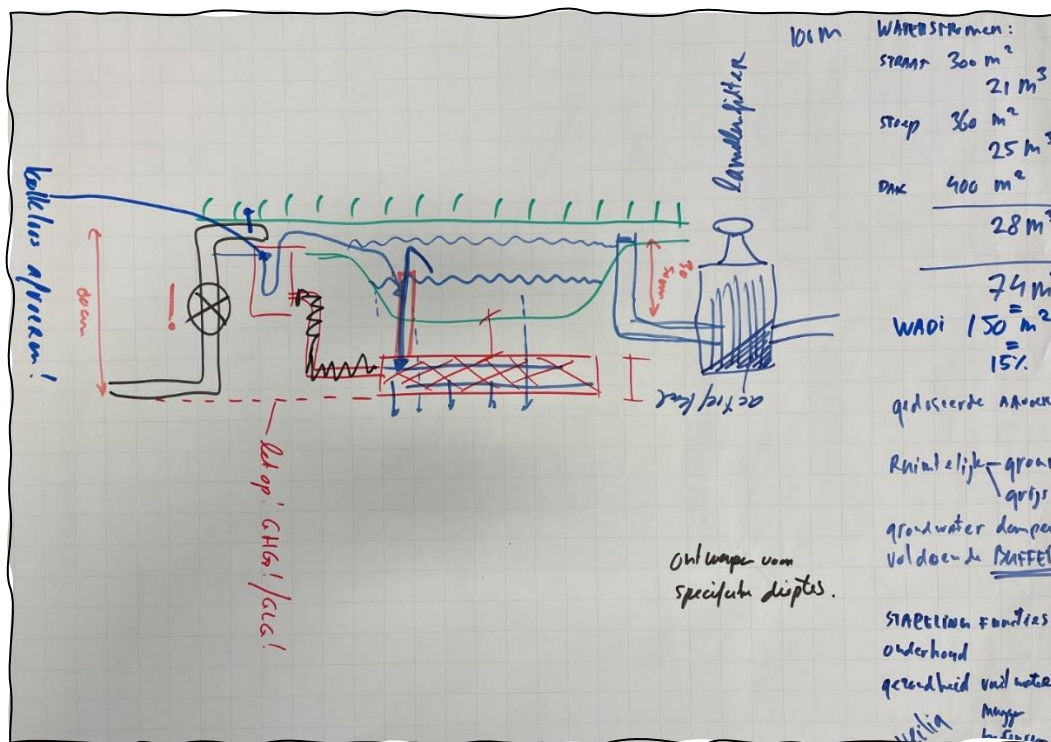 100 m
Lamellenfilter
kolkloos afvoeren!
80 cm
!
30
50 cm
actief kool
let op! GHG!/GLG!
ontwerpen voor
specifieke dieptes.
WATERSTROMEN:
STRAAT 300 m²
21 m³
STOEP 360 m²
25 m³
DAK 400 m²
28 m³
74 m
=
WADI 150 m²
=
15%
gedoseerde AANVOER
Ruimtelijk - groen
grijs
grondwater dempen
voldoende BUFFER
STAPELING Functies
onderhoud
gezondheid vuil water